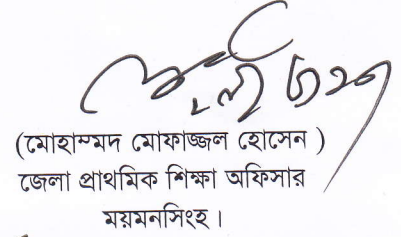 (মোহাম্মদ মোফাজ্জল হোসেন )
জেলা প্রাথমিক শিক্ষা অফিসার
ময়মনসিংহ।